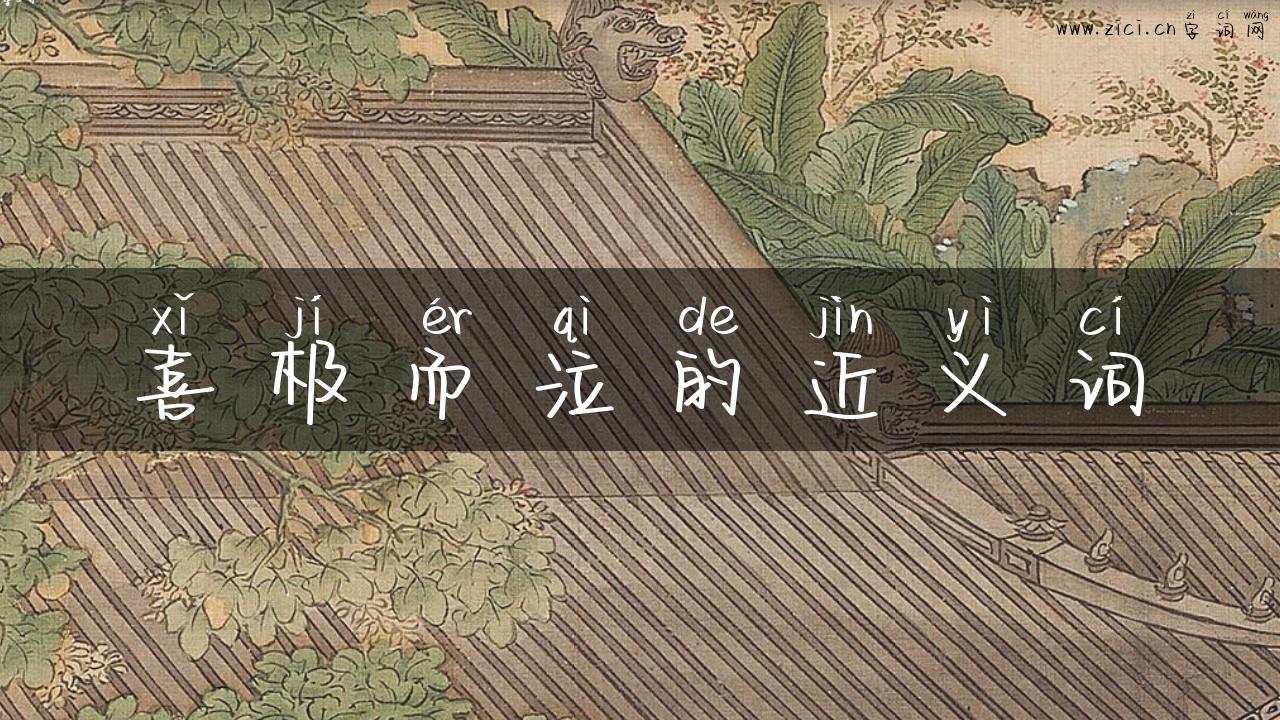 zì cí wǎng
www.zici.cn 字词网
xǐ jí ér qì de jìn yì cí
喜极而泣的近义词